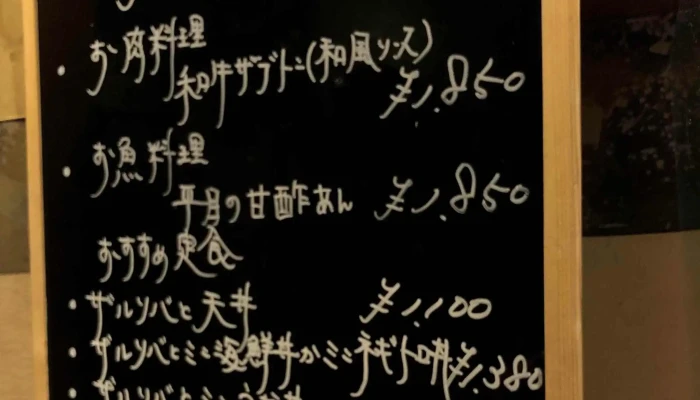 お肉料理
・和牛ザブトン(和風ソース) ¥1,850
・お魚料理
平目の甘酢あん ¥1,850
おすすめ定食
・ザルソバと天丼 ¥1,100
・ザルソバとミニ海鮮丼かミニネギトロ丼 ¥1,380
・ザルソバとミニ